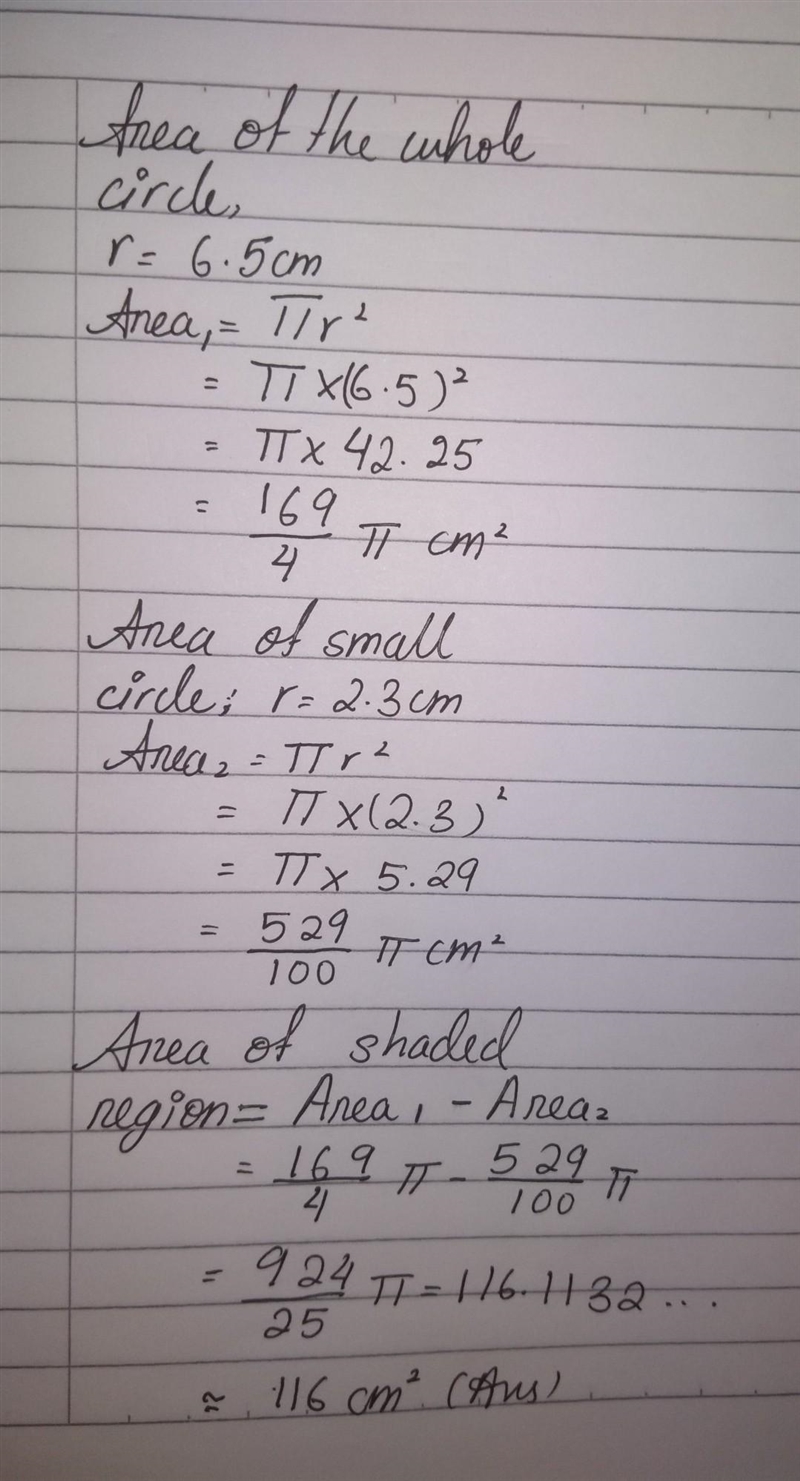 Area of the whole
circle,
r = 6.5cm
Area₁ = πr²
= π×(6.5)²
= π× 42.25
= 169/4 π cm²
Area of small
circle; r = 2.3cm
Area₂ = πr²
= π×(2.3)²
= π× 5.29
= 529/100 π cm²
Area of shaded
region = Area₁ - Area₂
= 169/4 π - 529/100 π
= 924/25 π = 116.1132...
≈ 116 cm² (Ans)